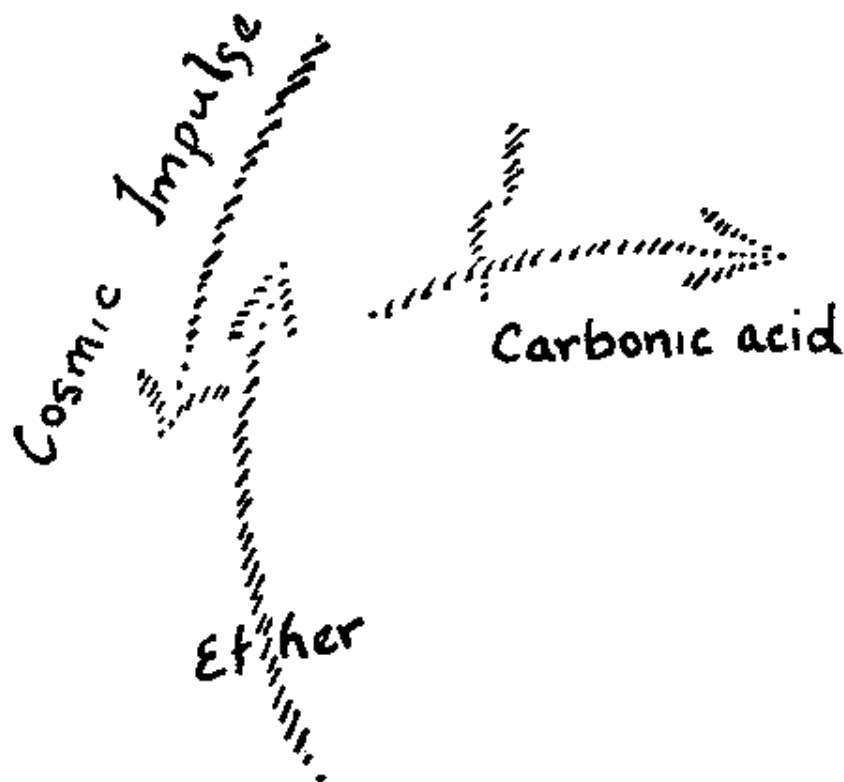 Cosmic Impulse
Carbonic acid
Ether